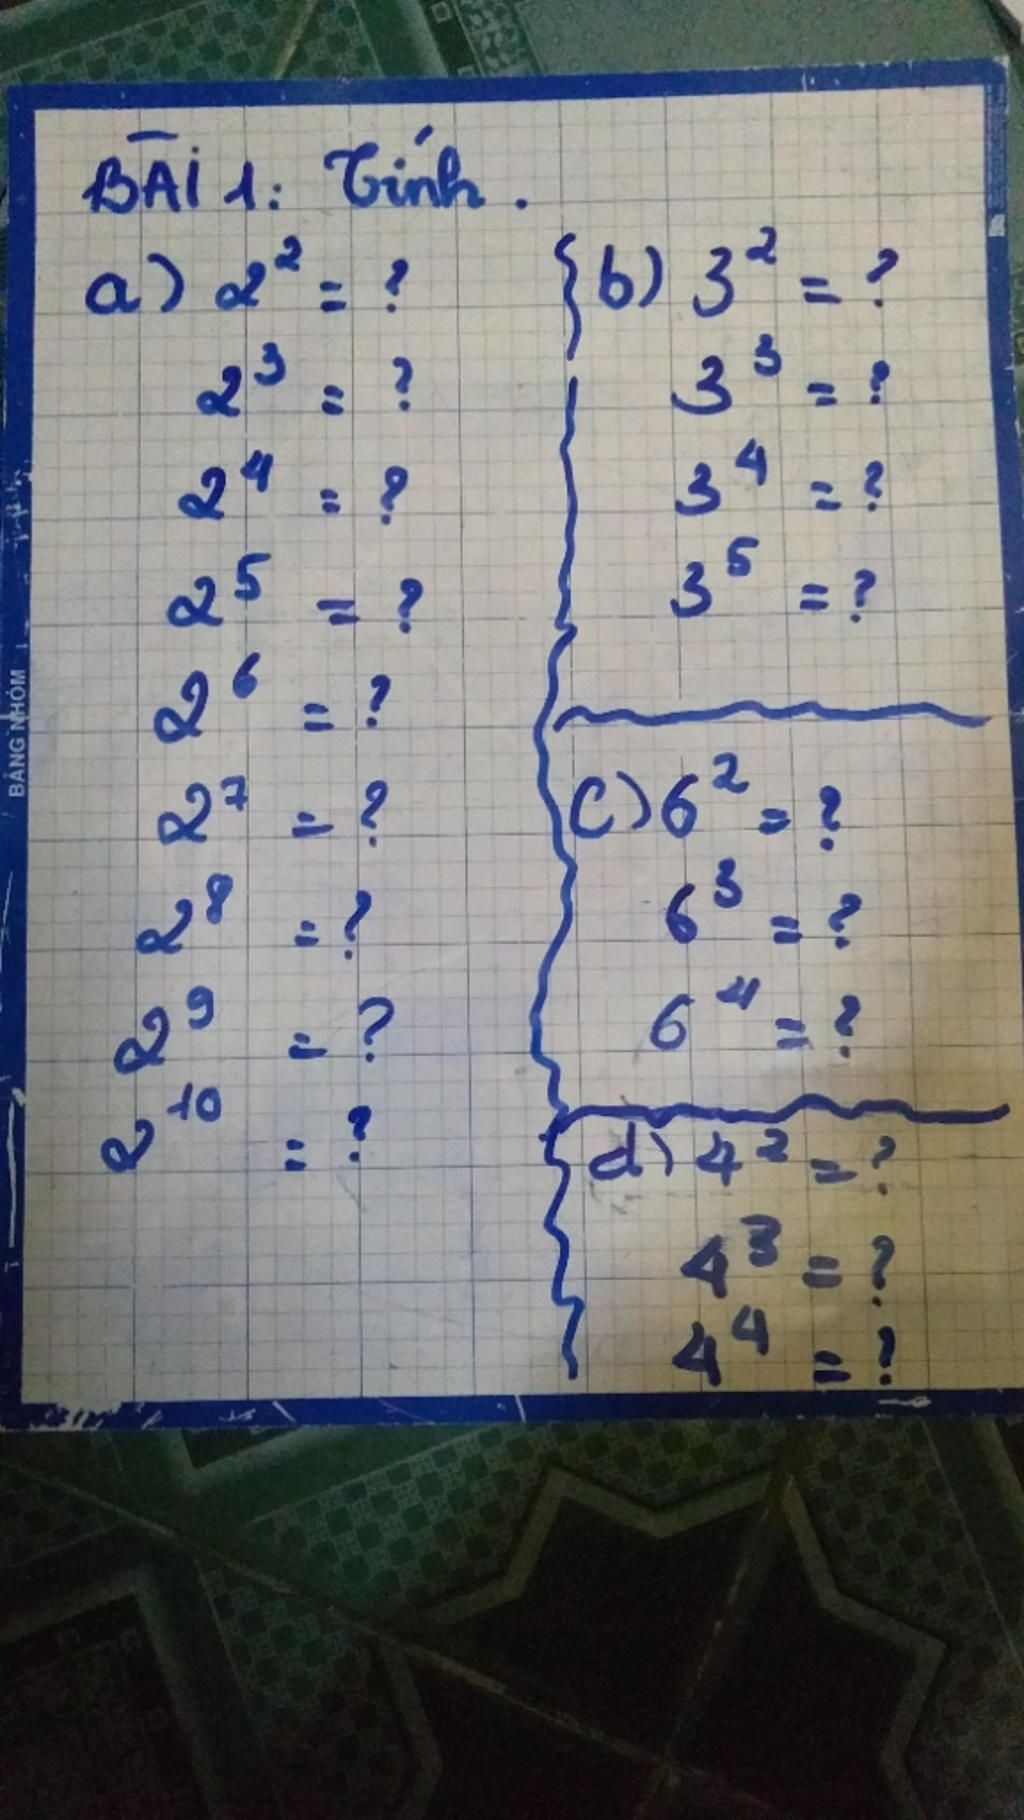 BÀI 1: Tính.
a) 2² = ?
2³ = ?
2⁴ = ?
2⁵ = ?
2⁶ = ?
2⁷ = ?
2⁸ = ?
2⁹ = ?
2¹⁰ = ?
b) 3² = ?
3³ = ?
3⁴ = ?
3⁵ = ?
c) 6² = ?
6³ = ?
6⁴ = ?
d) 4² = ?
4³ = ?
4⁴ = ?
BẢNG NHÓM